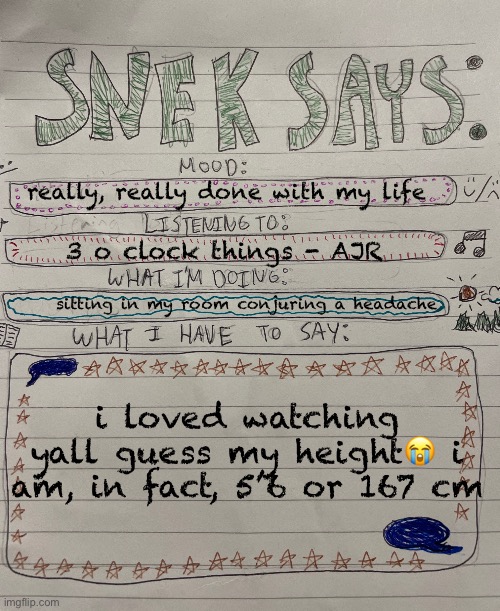 SNEK SAYS:
MOOD:
really, really done with my life
LISTENING TO:
3 o clock things - AJR
WHAT I'M DOING:
sitting in my room conjuring a headache
WHAT I HAVE TO SAY:
i loved watching
yall guess my height😭 i
am, in fact, 5"6 or 167 cm
imgflip.com